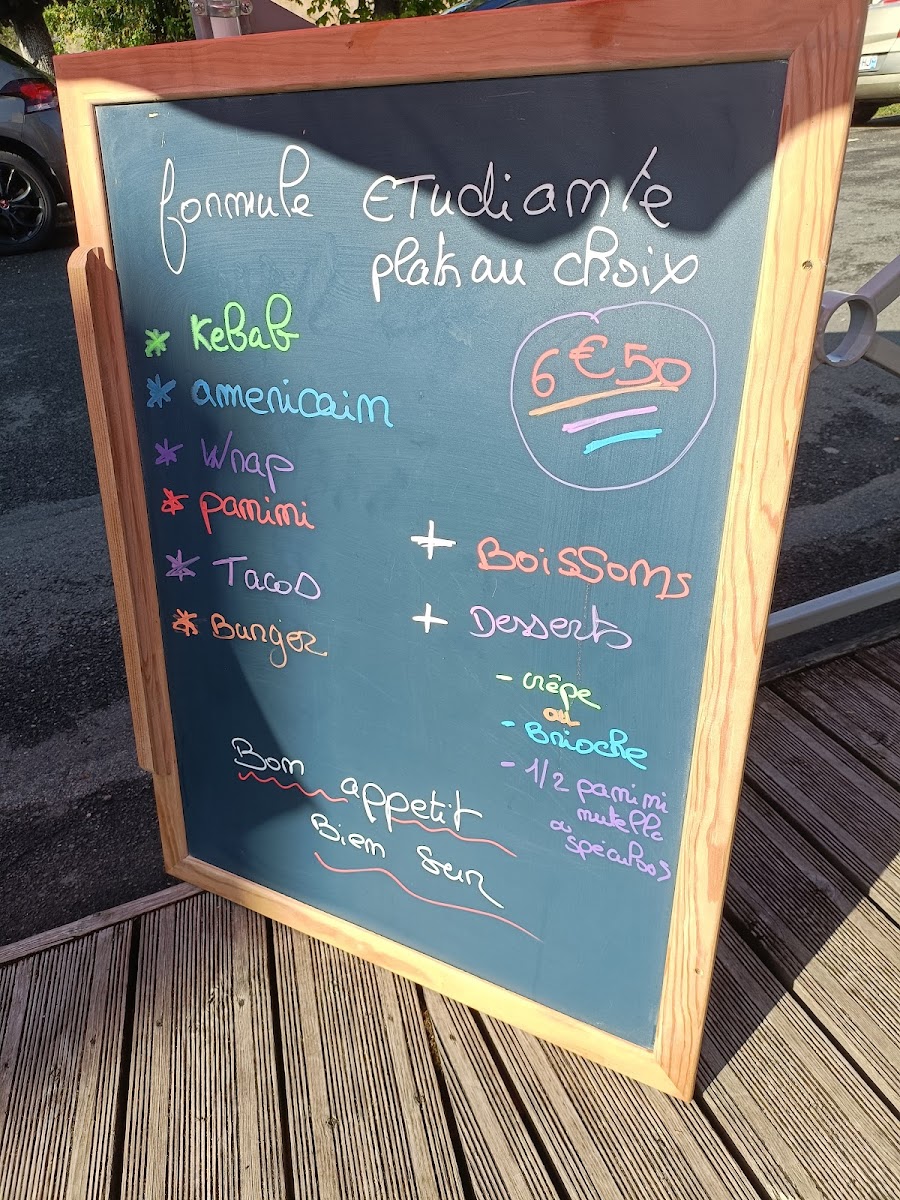 formule ETudiante
plats au choix
* Kebab
* americain
* Wrap
* panini
* Tacos
* Burger
6€50
+ BoisSons
+ Desserts
- crêpe
ou
- Brioche
- 1/2 panini
nutella
ou spéculoos
Bon appetit
Bien Sur